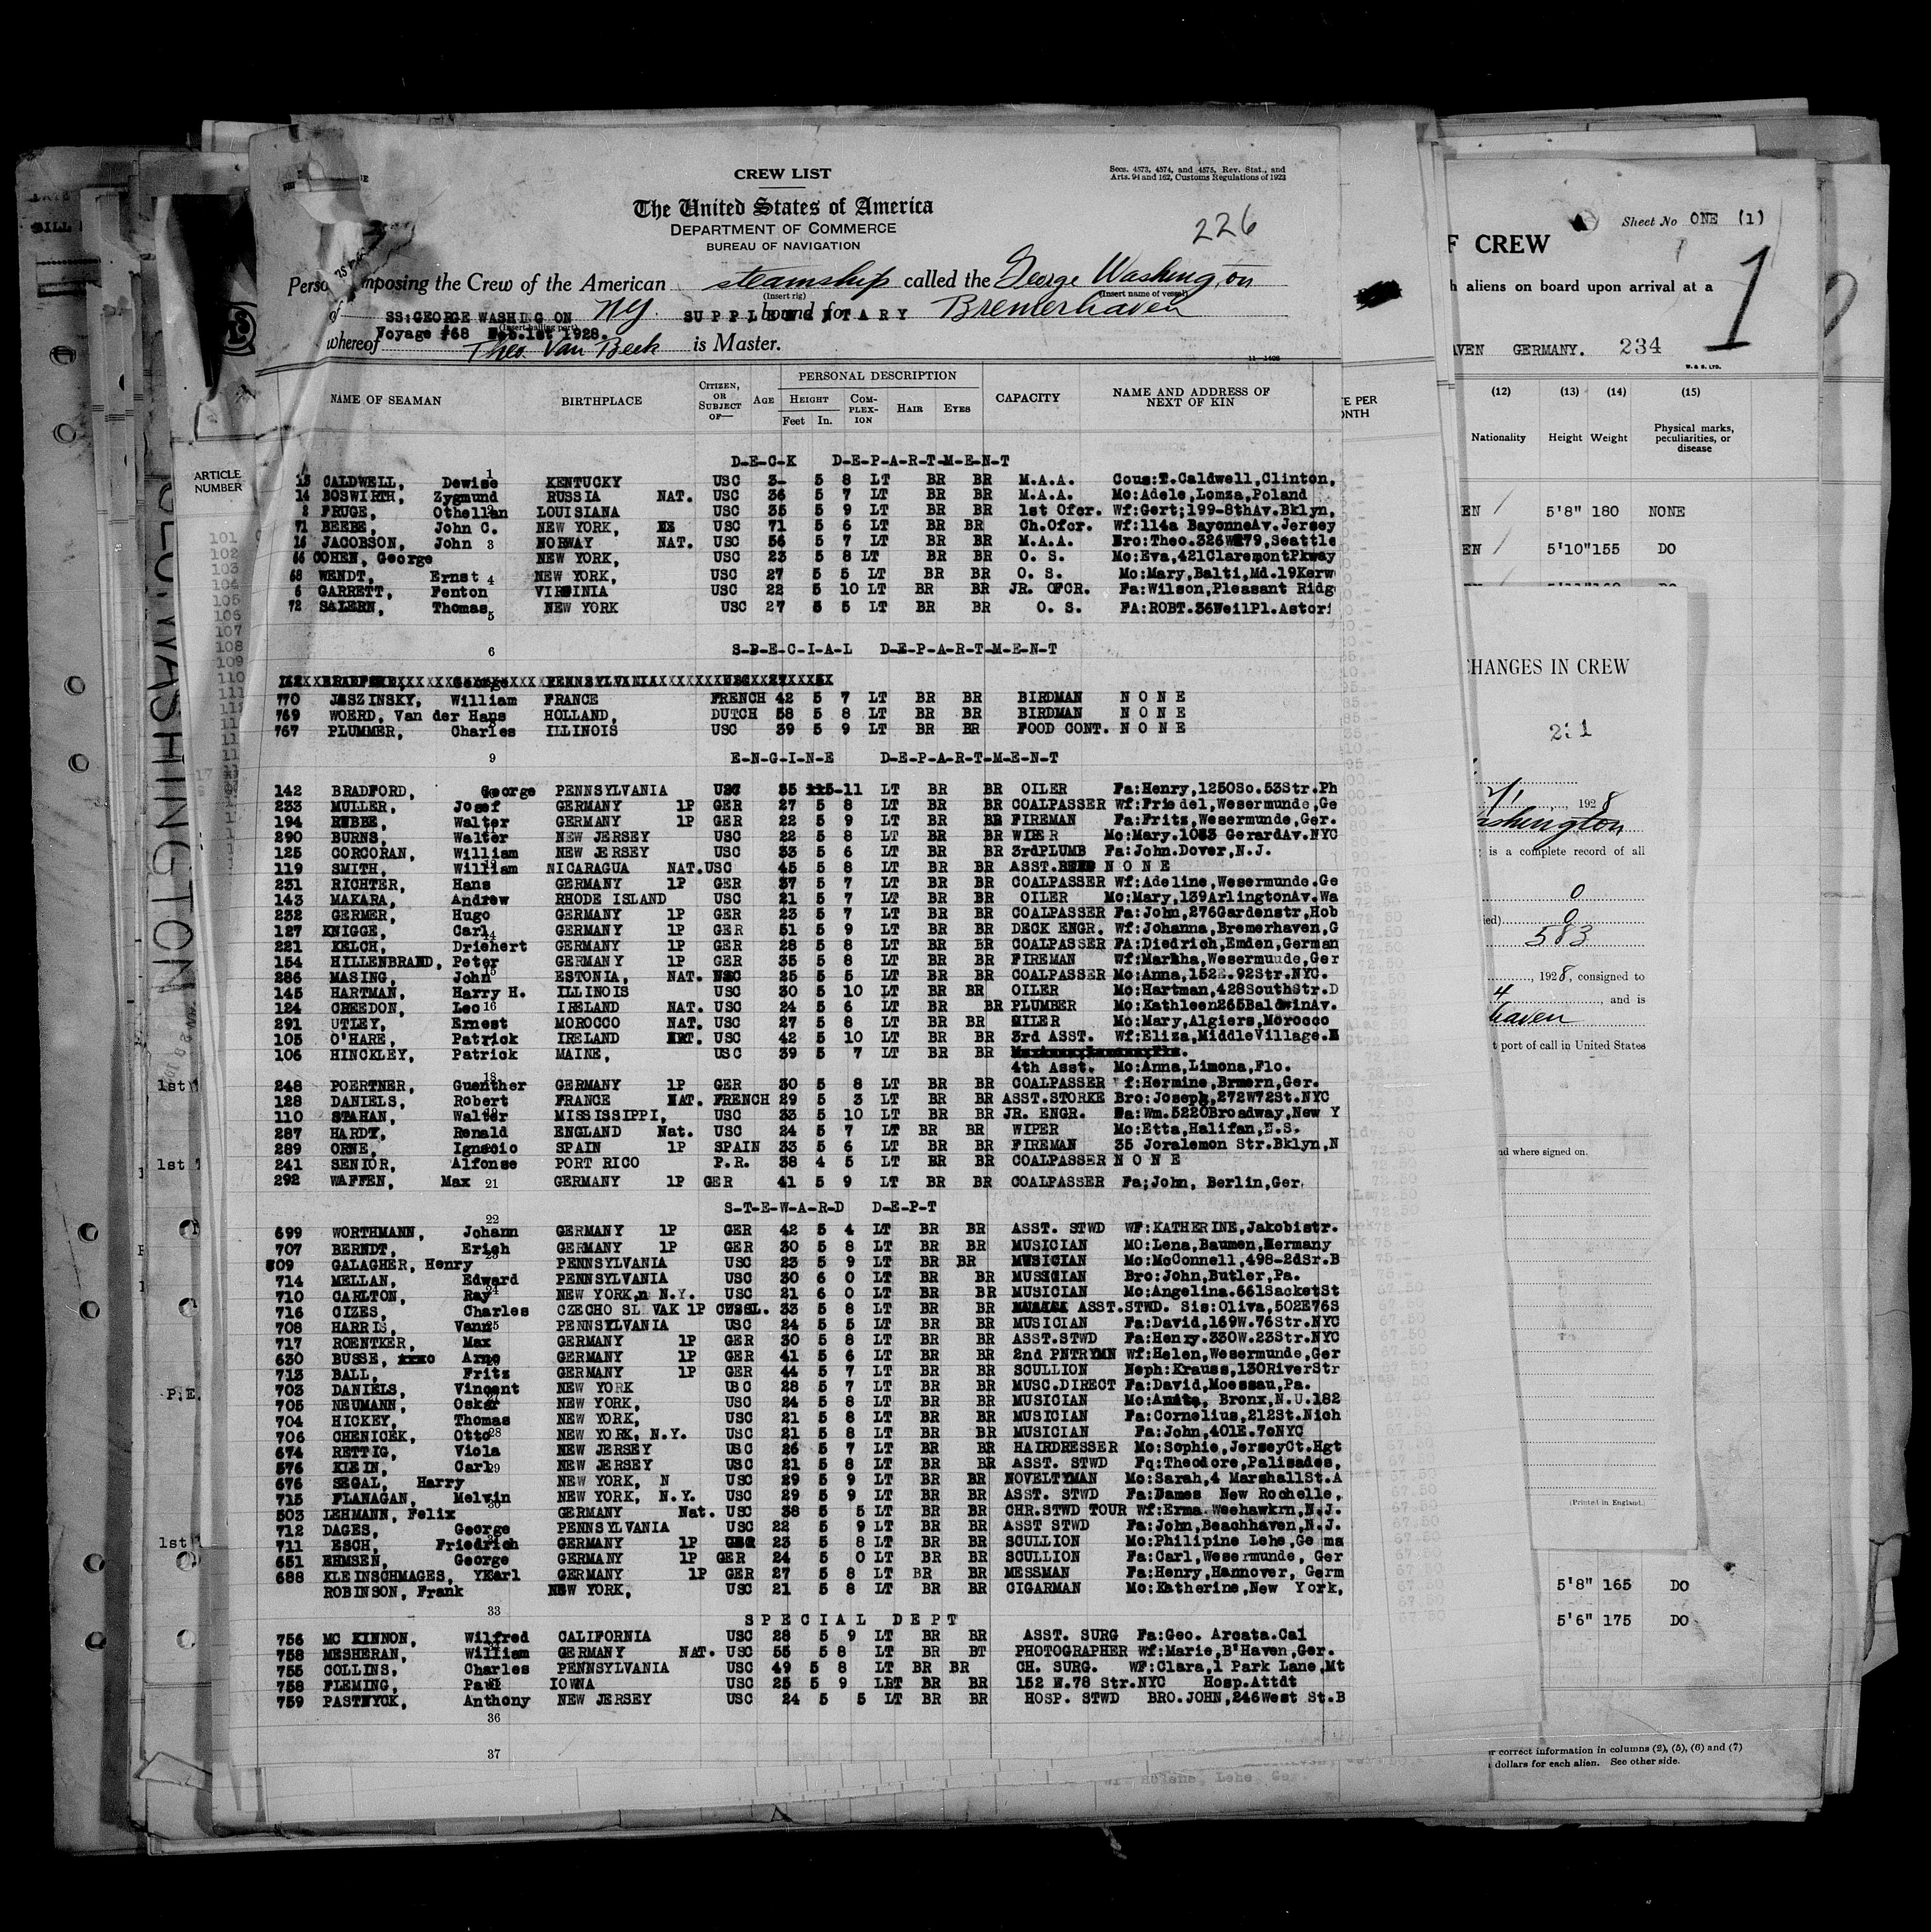 CREW LIST
Secs. 4573, 4574, and 4575, Rev. Stat., and
Arts. 94 and 162, Customs Regulations of 1923
The United States of America
DEPARTMENT OF COMMERCE
BUREAU OF NAVIGATION
226
mposing the Crew of the American steamship called the George Washington
(Insert rig) (Insert name of vessel)
of SS:GEORGE WASHING ON NY. SUPPLEMENTARY bound for Bremerhaven
(Insert hailing port)
Voyage #68 Feb.1st 1928.
whereof Theo. Van Beek is Master.
NAME OF SEAMAN BIRTHPLACE CITIZEN, OR SUBJECT OF— AGE PERSONAL DESCRIPTION HEIGHT Feet In. COMPLEXION HAIR EYES CAPACITY NAME AND ADDRESS OF NEXT OF KIN
D-E-C-K D-E-P-A-R-T-M-E-N-T
13 CALDWELL, Dewise KENTUCKY USC 3- 5 8 LT BR BR M.A.A. Cous:T.Caldwell,Clinton,
14 BOSWIRTH, Zygmund RUSSIA NAT. USC 36 5 7 LT BR BR M.A.A. Mo:Adele,Lomza,Poland
2 FRUGE, Othellan LOUISIANA USC 35 5 9 LT BR BR 1st Ofcr. Wf:Gert;199-8thAv.Bklyn,
71 BEEBE, John C. NEW YORK, USC 71 5 6 LT BR BR Ch.Ofcr. Wf:114a BayonneAv.Jersey
16 JACOBSON, John NORWAY NAT. USC 56 5 7 LT BR BR M.A.A. Bro:Theo.326W79,Seattle
66 COHEN, George NEW YORK, USC 23 5 8 LT BR BR O. S. Mo:Eva,421ClaremontPkway
68 WENDT, Ernst NEW YORK, USC 27 5 5 LT BR BR O. S. Mo:Mary,Balti,Md.19Kerw
6 GARRETT, Fenton VIRGINIA USC 22 5 10 LT BR BR JR. OFCR. Fa:Wilson,Pleasant Ridg
72 SALERN, Thomas NEW YORK USC 27 5 5 LT BR BR O. S. FA:ROBT.36WeilPl.Astori
S-P-E-C-I-A-L D-E-P-A-R-T-M-E-N-T
770 JESZINSKY, William FRANCE FRENCH 42 5 7 LT BR BR BIRDMAN N O N E
769 WOERD, Van der Hans HOLLAND, DUTCH 58 5 8 LT BR BR BIRDMAN N O N E
767 PLUMMER, Charles ILLINOIS USC 39 5 9 LT BR BR FOOD CONT. N O N E
E-N-G-I-N-E D-E-P-A-R-T-M-E-N-T
142 BRADFORD, George PENNSYLVANIA USC 35 5-11 LT BR BR OILER Fa:Henry,1250So.53Str.Ph
233 MULLER, Josef GERMANY 1P GER 27 5 8 LT BR BR COALPASSER Wf:Friedel,Wesermunde,Ge
194 RUBBE, Walter GERMANY 1P GER 22 5 9 LT BR BR FIREMAN Fa:Fritz,Wesermunde,Ger.
290 BURNS, Walter NEW JERSEY USC 22 5 8 LT BR BR WIPER Mo:Mary.1083 GerardAv.NYC
125 CORCORAN, William NEW JERSEY USC 33 5 6 LT BR BR 3rdPLUMB Fa:John.Dover,N.J.
119 SMITH, William NICARAGUA NAT.USC 45 5 8 LT BR BR ASST. N O N E
231 RICHTER, Hans GERMANY 1P GER 37 5 7 LT BR BR COALPASSER Wf:Adeline,Wesermunde.Ge
143 MAKARA, Andrew RHODE ISLAND USC 21 5 7 LT BR BR OILER Mo:Mary,139ArlingtonAv.Wa
232 GERMER, Hugo GERMANY 1P GER 23 5 7 LT BR BR COALPASSER Fa:John,276Gardenstr,Hob
127 KNIGGE, Carl GERMANY 1P GER 51 5 9 LT BR BR DECK ENGR. Wf:Johanna,Bremerhaven,G
221 KELCH, Driehert GERMANY 1P GER 28 5 8 LT BR BR COALPASSER FA:Diedrich,Emden,German
154 HILLENBRAND, Peter GERMANY 1P GER 35 5 8 LT BR BR FIREMAN Wf:Martha,Wesermuude,Ger
286 MASING, John ESTONIA, NAT. USC 25 5 5 LT BR BR COALPASSER Mo:Anna,152E.92Str.NYC.
145 HARTMAN, Harry H. ILLINOIS USC 30 5 10 LT BR BR OILER Mo:Hartman,428SouthStr.D
124 CREEDON, Leo IRELAND NAT. USC 24 5 6 LT BR BR PLUMBER Mo:Kathleen265BaldwinAv.
291 UTLEY, Ernest MOROCCO NAT. USC 27 5 8 LT BR BR OILER Mo:Mary,Algiers,Morocco
105 O'HARE, Patrick IRELAND NAT. USC 42 5 10 LT BR BR 3rd ASST. Wf:Eliza,MiddleVillage.
106 HINCKLEY, Patrick MAINE, USC 39 5 7 LT BR BR
4th Asst. Mo:Anna,Limona,Flo.
248 POERTNER, Guenther GERMANY 1P GER 30 5 8 LT BR BR COALPASSER f:Hermine,Brmern,Ger.
128 DANIELS, Robert FRANCE NAT. FRENCH 29 5 3 LT BR BR ASST.STORKE Bro:Joseph,272W72St.NYC
110 STAHAN, Walter MISSISSIPPI, USC 33 5 10 LT BR BR JR. ENGR. Fa:Wm.5220Broadway,New Y
287 HARDT, Renald ENGLAND Nat. USC 24 5 7 LT BR BR WIPER Mo:Etta,Halifan,N.S.
289 ORNE, Ignacio SPAIN 1P SPAIN 33 5 6 LT BR BR FIREMAN 35 Joralemon Str.Bklyn,N
241 SENIOR, Alfonse PORT RICO P.R. 38 4 5 LT BR BR COALPASSER N O N E
292 WAFFEN, Max GERMANY 1P GER 41 5 9 LT BR BR COALPASSER Fa;John, Berlin,Ger.
S-T-E-W-A-R-D D-E-P-T
699 WORTHMANN, Johann GERMANY 1P GER 42 5 4 LT BR BR ASST. STWD WF:KATHERINE,Jakobistr.
707 BERNDT, Erich GERMANY 1P GER 30 5 8 LT BR BR MUSICIAN MO:Lena,Baumen,Hermany
809 GALAGHER, Henry PENNSYLVANIA USC 23 5 9 LT BR BR MUSICIAN Mo:McConnell,498-2dSr.B
714 MELLAN, Edward PENNSYLVANIA USC 30 6 0 LT BR BR MUSICIAN Bro:John,Butler,Pa.
710 CARLTON, Ray NEW YORK, N.Y. USC 21 6 0 LT BR BR MUSICIAN Mo:Angelina.661SacketSt
716 CIZES, Charles CZECHO SL VAK 1P 33 5 8 LT BR BR ASST.STWD. Sis:Oliva,502E76S
708 HARRIS, Vann PENNSYLVANIA USC 24 5 5 LT BR BR MUSICIAN Fa:David,169W.76Str.NYC
717 ROENTKER, Max GERMANY 1P GER 30 5 8 LT BR BR ASST.STWD Fa:Henry.330W.23Str.NYC
630 BUSSE, Arno GERMANY 1P GER 41 5 6 LT BR BR 2nd PNTRYMN Wf:Helen,Wesermunde,Ger
713 BALL, Fritz GERMANY 1P GER 44 5 7 LT BR BR SCULLION Neph:Krauss,130RiverStr
703 DANIELS, Vincent NEW YORK USC 28 5 7 LT BR BR MUSC.DIRECT Fa:David,Moessau,Pa.
705 NEUMANN, Oskar NEW YORK, USC 24 5 8 LT BR BR MUSICIAN Mo:Anita, Bronx,N.U.182
704 HICKEY, Thomas NEW YORK, USC 21 5 8 LT BR BR MUSICIAN Fa:Cornelius,212St.Nich
706 CHENICEK, Otto NEW YORK, N.Y. USC 21 5 8 LT BR BR MUSICIAN Fa:John,401E.7oNYC
674 RETTIG, Viola NEW JERSEY USC 26 5 7 LT BR BR HAIRDRESSER Mo:Sophie,JerseyCt.Hgt
576 KLEIN, Carl NEW JERSEY USC 21 5 8 LT BR BR ASST. STWD Fq:Theodore,Palisades,
676 SEGAL, Harry NEW YORK, N USC 29 5 9 LT BR BR NOVELTYMAN Mo:Sarah,4 MarshallSt.A
715 FLANAGAN, Melvin NEW YORK, N.Y. USC 29 5 9 LT BR BR ASST. STWD Fa:Dames New Rochelle,
503 LEHMANN, Felix GERMANY Nat. USC 38 5 5 LT BR BR CHR.STWD TOUR Wf:Erma Weehawkrn,N.J.
712 DAGES, George PENNSYLVANIA USC 22 5 9 LT BR BR ASST STWD Fa:John,Beachhaven,N.J.
711 ESCH, Friedrich GERMANY 1P GER 23 5 8 LT BR BR SCULLION Mo:Philipine Lehe,Ge ma
651 EHMSEN, George GERMANY 1P GER 24 5 0 LT BR BR SCULLION Fa:Carl,Wesermunde, Ger
688 KLEINSCHMAGES, Karl GERMANY 1P GER 27 5 8 LT BR BR MESSMAN Fa:Henry,Hannover, Germ
ROBINSON, Frank NEW YORK, USC 21 5 8 LT BR BR CIGARMAN Mo:Katherine,New York,
33
S P E C I A L D E P T
756 MC KINNON, Wilfred CALIFORNIA USC 28 5 9 LT BR BR ASST. SURG Fa:Geo. Arcata.Cal
758 MESHERAN, William GERMANY NAT. USC 55 5 8 LT BR BT PHOTOGRAPHER Wf:Marie,B'Haven,Ger.
755 COLLINS, Charles PENNSYLVANIA USC 49 5 8 LT BR BR CH. SURG. WF:Clara,1 Park Lane,Mt
758 FLEMING, Paul IOWNA USC 25 5 9 LT BR BR 152 W.78 Str.NYC Hosp.Attdt
759 PASTNYCK, Anthony NEW JERSEY USC 24 5 5 LT BR BR HOSP. STWD BRO.JOHN,246West St.B
36
37
ARTICLE NUMBER
101
102
103
104
105
106
107
108
109
110
WASHINGTON
1st
1st
P.E.
1st
Sheet No ONE (1)
F CREW
1
h aliens on board upon arrival at a
AVEN GERMANY. 234
W. & S. LTD.
(12) (13) (14) (15)
Nationality Height Weight Physical marks, peculiarities, or disease
EN 5'8" 180 NONE
EN 5'10" 155 DO
CHANGES IN CREW
231
1928
ashington
is a complete record of all
0
ied) 0
583
, 1928, consigned to
4 , and is
haven
t port of call in United States
nd where signed on.
(Printed in England.)
5'8" 165 DO
5'6" 175 DO
r correct information in columns (2), (5), (6) and (7)
dollars for each alien. See other side.